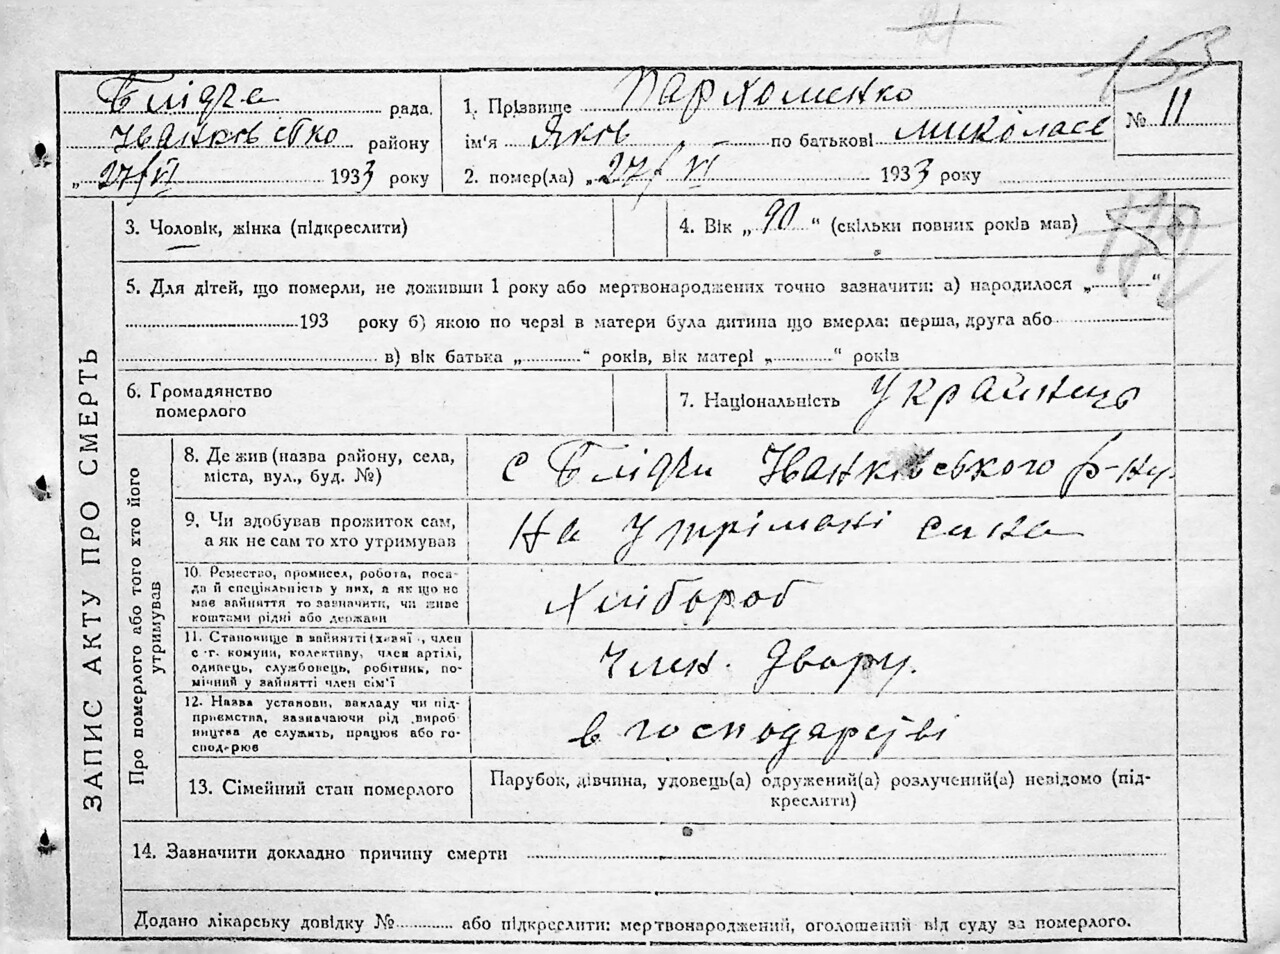 21
153
Блідча рада.
Іванковсько району
„27/VI 1933 року
1. Прізвище Пархоменко
ім'я Яков по батькові миколаєв
2. помер(ла) „27/VI 1933 року
№ 11
ЗАПИС АКТУ ПРО СМЕРТЬ
3. Чоловік, жінка (підкреслити)
4. Вік „90“ (скільки повних років мав)
5. Для дітей, що померли, не доживши 1 року або мертвонароджених точно зазначити: а) народилося „ “
193 року б) якою по черзі в матери була дитина що вмерла: перша, друга або
в) вік батька „ “ років, вік матері „ “ років
6. Громадянство
померлого
7. Національність Українець
Про померлого або того хто його
утримував
8. Де жив (назва району, села,
міста, вул., буд. №)
с Блідчи Іванковського р-ну.
9. Чи здобував прожиток сам,
а як не сам то хто утримував
На утрімані сина
10. Ремество, промисел, робота, поса-
да й спеціяльність у них, а як що не
має зайняття то зазначити, чи живе
коштами рідні або держави
Хлібороб
11. Становище в зайнятті (хазяї, член
с.-г. комуни, колективу, член артілі,
одинець, службовець, робітник, по-
мічний у зайнятті член сім'ї
Член. Двору.
12. Назва установи, закладу чи під-
приємства, зазначаючи рід вироб
ництва де служить, працює або го-
сподарює
в господарстві
13. Сімейний стан померлого
Парубок, дівчина, удовець(а) одружений(а) розлучений(а) невідомо (під-
креслити)
14. Зазначити докладно причину смерти
Додано лікарську довідку № або підкреслити: мертвонароджений, оголошений від суду за померлого.